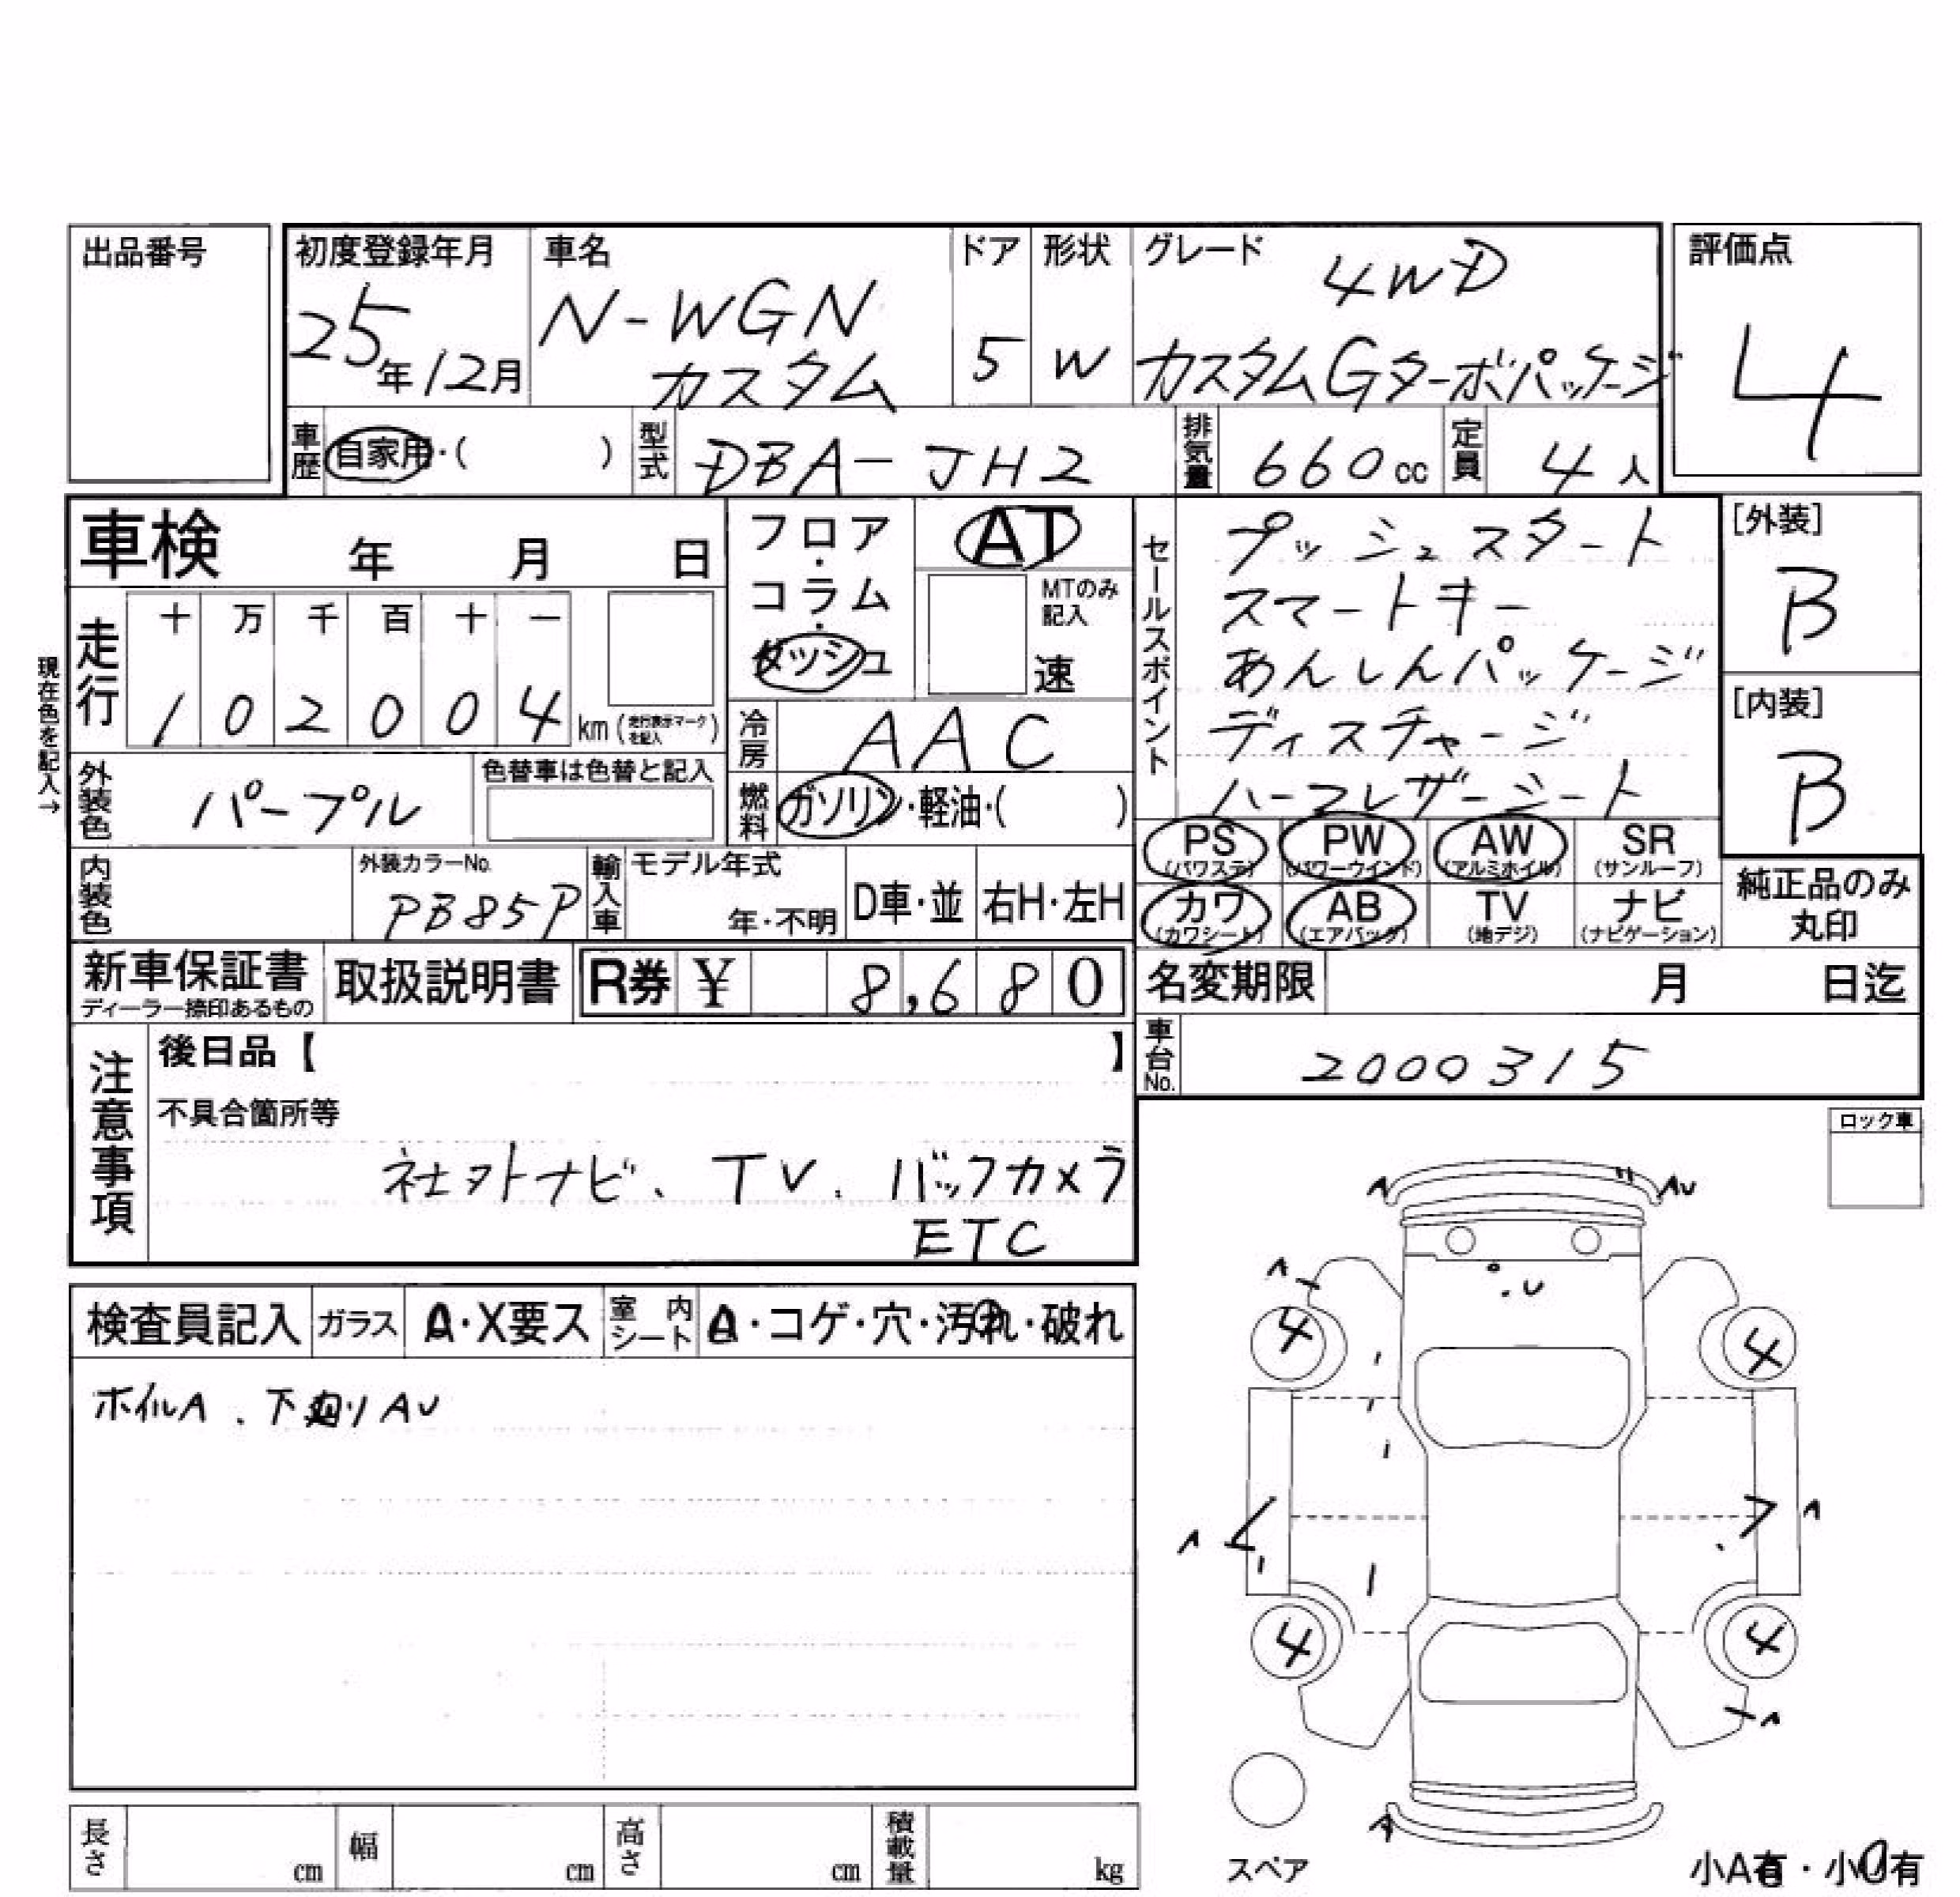 出品番号
初度登録年月 車名 ドア 形状 グレード 評価点
25年12月 N-WGN カスタム 5 W 4WD カスタムGターボパッケージ 4
車歴 自家用・( ) 型式 DBA-JH2 排気量 660cc 定員 4人
車検 年 月 日
フロア・コラム・ダッシュ
AT
MTのみ記入
速
セールスポイント
プッシュスタート
スマートキー
あんしんパッケージ
ディスチャージ
ハーフレザーシート
[外装]
B
[内装]
B
現在色を記入→
走行
十 万 千 百 十 一
1 0 2 0 0 4 km (走行表示マークを記入)
冷房 AAC
外装色 パープル 色替車は色替と記入
燃料 ガソリン・軽油・( )
PS PW AW SR
(パワステ) (パワーウインド) (アルミホイル) (サンルーフ)
カワ AB TV ナビ
(カワシート) (エアバック) (地デジ) (ナビゲーション)
純正品のみ
丸印
内装色 外装カラーNo. PB85P 輸入車 モデル年式 年・不明 D車・並 右H・左H
新車保証書 取扱説明書 R券 ¥ 8,680
ディーラー捺印あるもの
名変期限 月 日迄
車台No. 2000315
注意事項
後日品【 】
不具合箇所等
社外ナビ、TV、バックカメラ
ETC
ロック車
検査員記入 ガラス A・X要ス 室内シート A・コゲ・穴・汚れ・破れ
ホイルA、下廻りAU
A AU
A
U
4 4
A A
4 4
A
A
スペア
小A有・小U有
長さ cm 幅 cm 高さ cm 積載量 kg